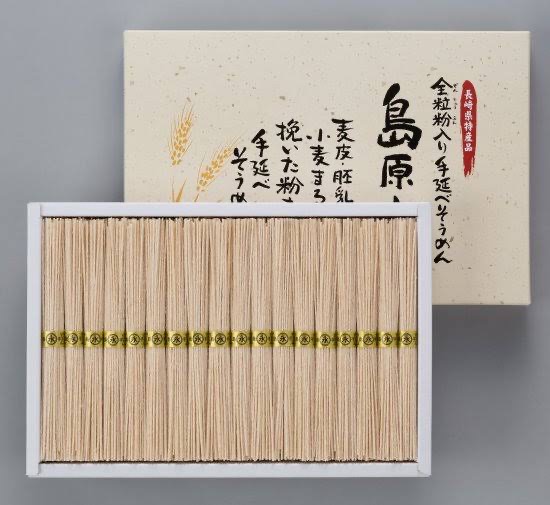 長崎県特産品
全粒粉入り手延べそうめん
ぜんりゅうふん
島原
麦皮・胚乳
小麦まる
挽いた粉
手延べ
そうめ
永